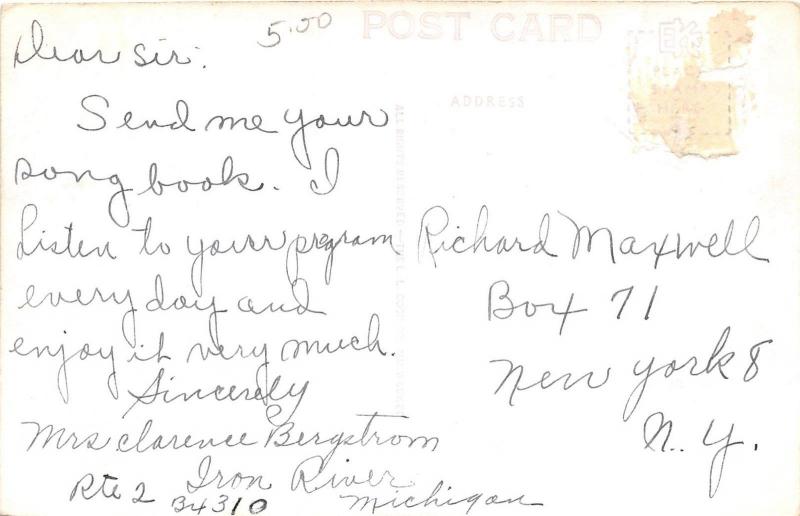 5.00
POST CARD
Dear Sir:
Send me your
song book. I
Listen to your program
every day and
enjoy it very much.
Sincerely
Mrs Clarence Bergstrom
Rte 2 Iron River
34310 Michigan
ADDRESS
EKC
PLACE
STAMP
HERE
Richard Maxwell
Box 71
New York 8
N. Y.